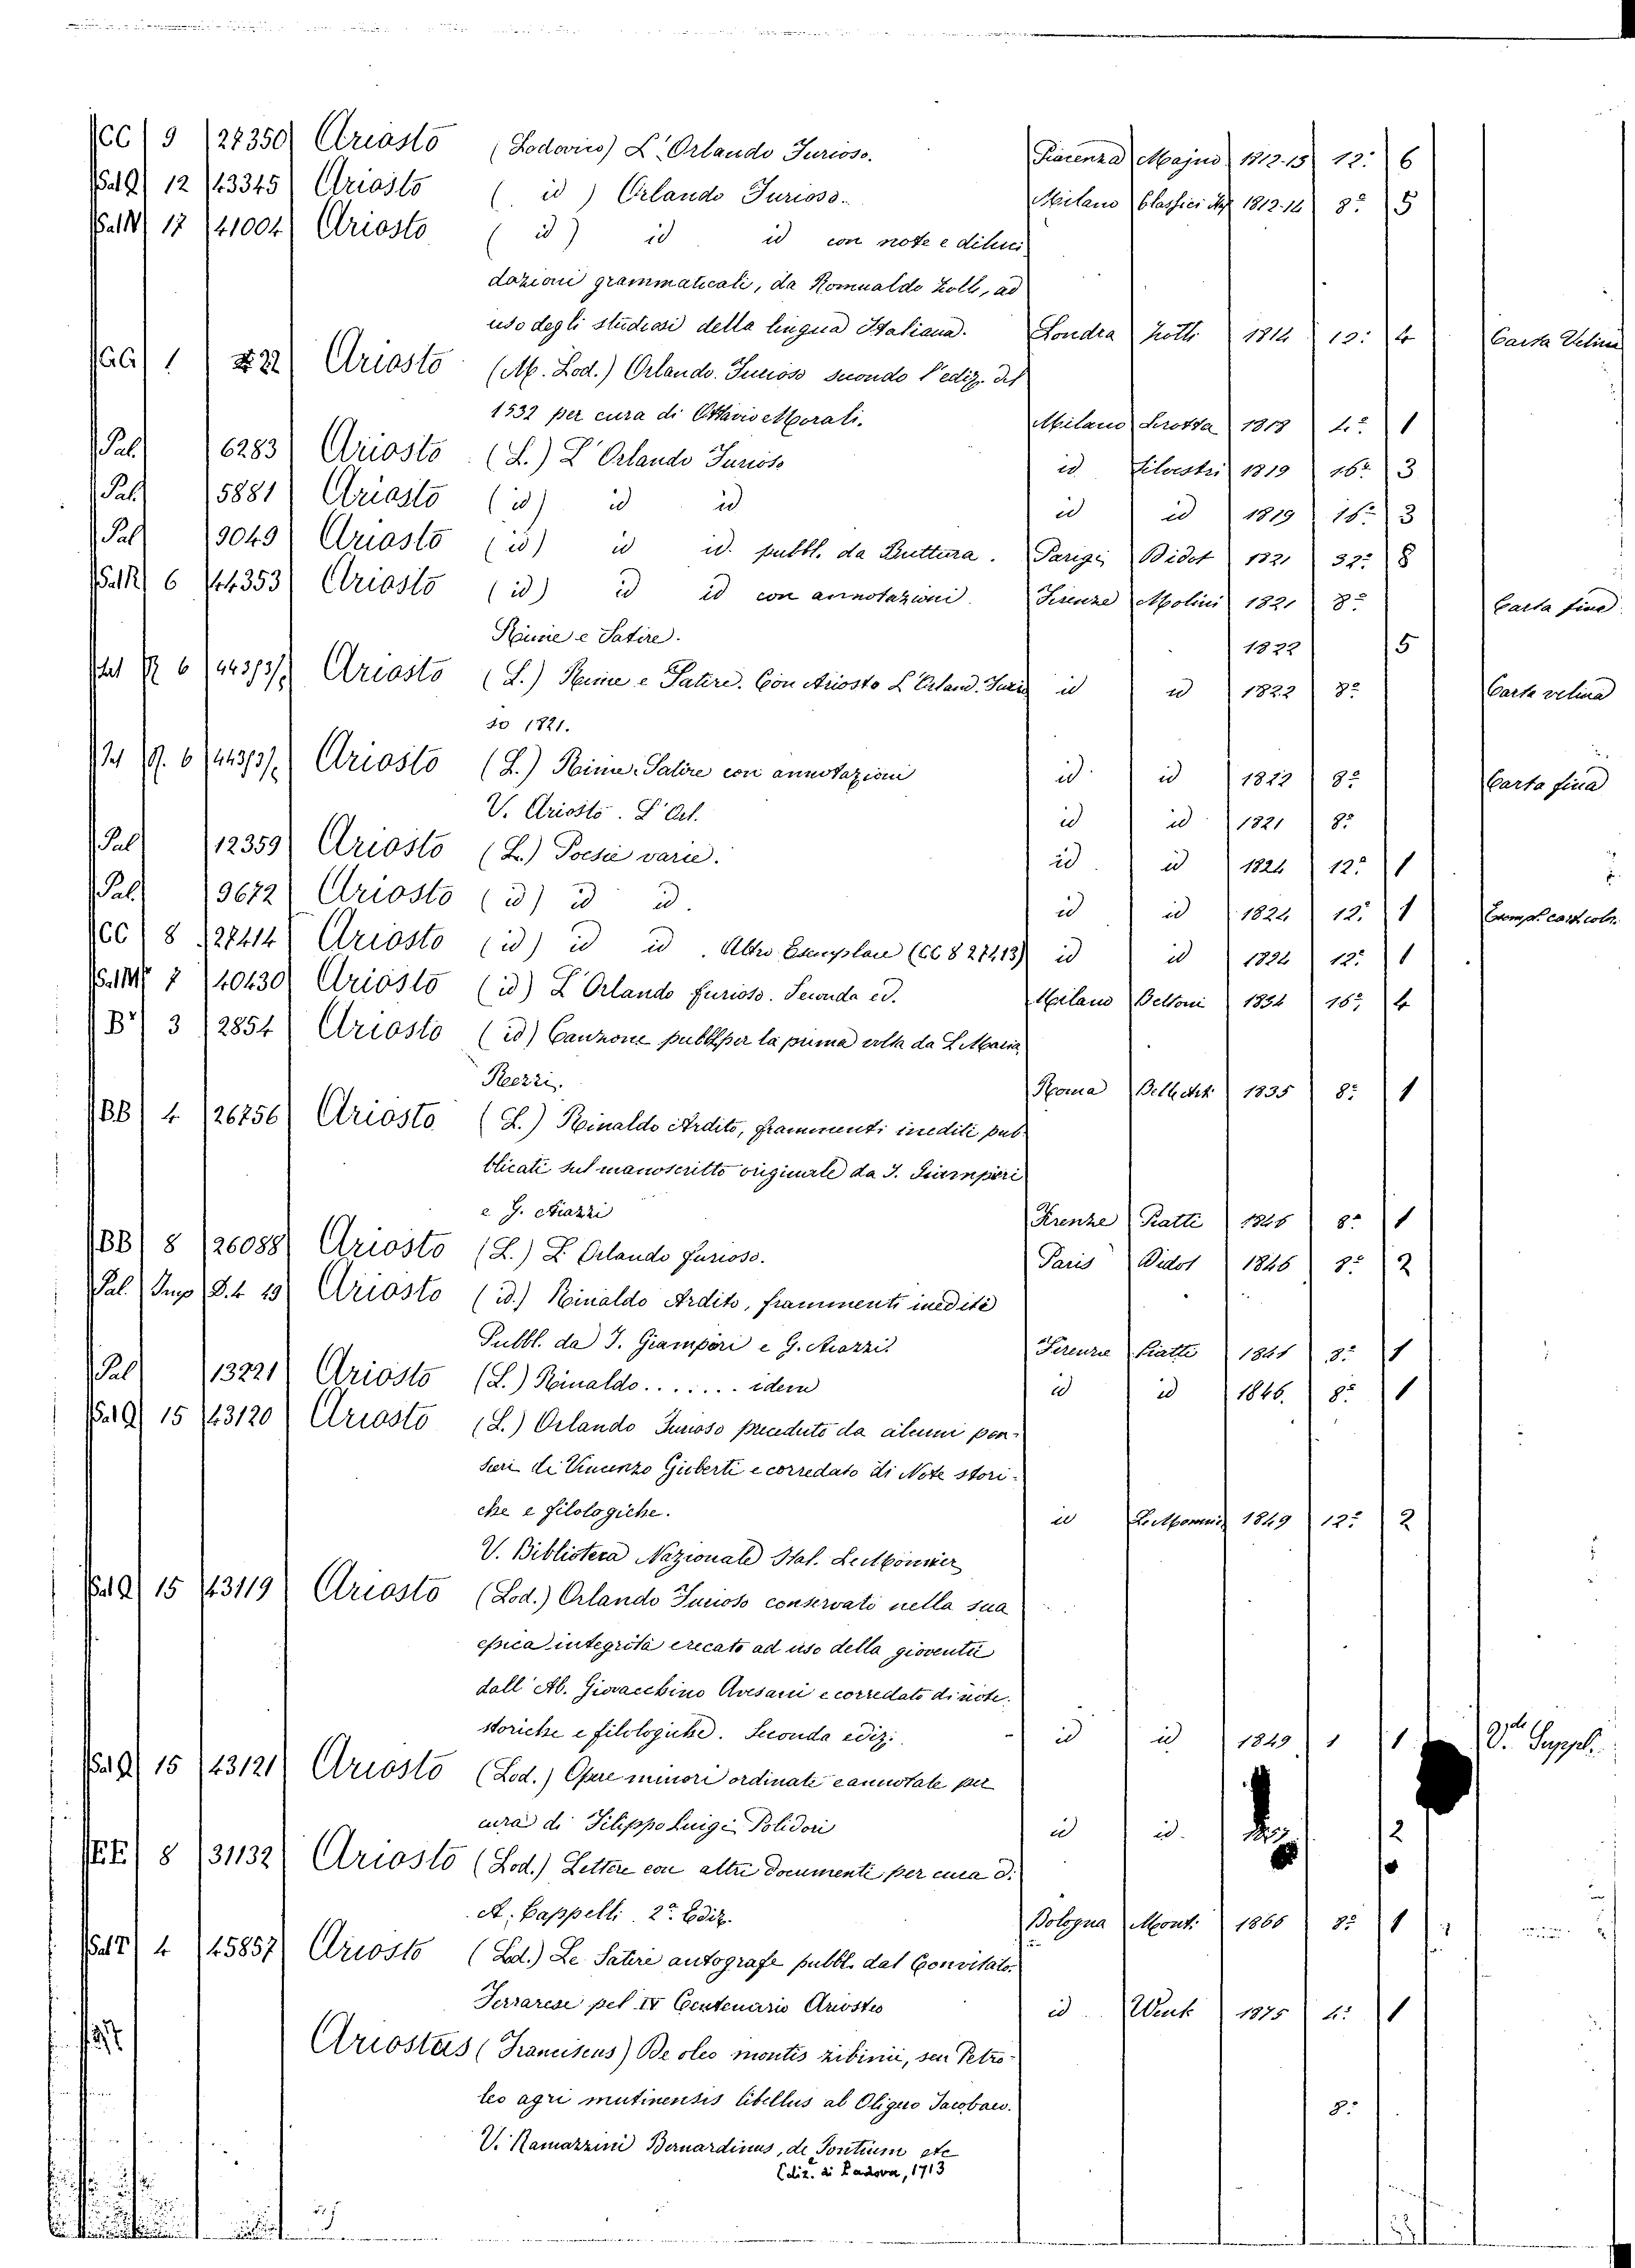 CC 9 27350 Ariosto (Lodovico) L'Orlando Furioso. Piacenza Majno 1812-15 12.° 6
Sal Q 12 43345 Ariosto ( id ) Orlando Furioso. Milano Classici 1812-14 8.° 5
17 41004 Ariosto ( id ) id id con note e diluci
dazioni grammaticali, da Romualdo Zotti, ad
uso degli studiosi della lingua Italiana. Londra Zotti 1814 12.° 4 Carta Velina
1 22 Ariosto (M. Lod.) Orlando Furioso secondo l'ediz. del
1532 per cura di Ottavio Morali. Milano Pirotta 1818 4.° 1
Pal. 6283 Ariosto (L.) L'Orlando Furioso id Silvestri 1819 16.° 3
Pal. 5881 Ariosto (id) id id id id 1819 16.° 3
Pal 9049 Ariosto (id) id id. pubbl. da Buttura. Parigi Didot 1821 32.° 8
Sal R 6 44353 Ariosto (id) id id con annotazioni. Firenze Molini 1821 8.° Carta fina
Rime e Satire. 1822 5
R 6 Ariosto (L.) Rime e Satire. Con Ariosto L'Orland. Furio id id 1822 8.° Carta velina
so 1821.
6 Ariosto (L.) Rime e Satire con annotazioni id. id 1822 8.° Carta fina
V. Ariosto. L'Orl. id id 1821 8.°
Pal 12359 Ariosto (L.) Poesie varie. id id 1824 12.° 1
Pal. 9672 Ariosto (id) id id. id id 1824 12.° 1
CC 8 27414 Ariosto (id) id id. Altro Esemplare (CC 8 27413) id id 1824 12.° 1
7 40430 Ariosto (id) L'Orlando furioso. Seconda ed. Milano Bettoni 1834 16.° 4
3 2854 Ariosto (id) Canzone pubbl. per la prima volta da L. Maria
Rezzi. Roma Belle Arti 1835 8.° 1
BB 4 26756 Ariosto (L.) Rinaldo Ardito, frammenti inediti pub-
blicati sul manoscritto originale da I. Giampieri
e G. Aiazzi Firenze Piatti 1846 8.° 1
BB 8 26088 Ariosto (L.) L'Orlando furioso. Paris Didot 1846 8.° 2
Pal. Imp D.4 19 Ariosto (id.) Rinaldo Ardito, frammenti inediti
Pubbl. da I. Giampieri e G. Aiazzi. Firenze Piatti 8.° 1
Pal 13221 Ariosto (L.) Rinaldo....... idem id id 1846. 8.° 1
Sal Q 15 43120 Ariosto (L.) Orlando Furioso preceduto da alcuni pen-
sieri di Vincenzo Gioberti e corredato di Note stori-
che e filologiche. id Le Monnier 1849 12.° 2
V. Biblioteca Nazionale Ital. Le Monnier
Sal Q 15 43119 Ariosto (Lod.) Orlando Furioso conservato nella sua
epica integrità e recato ad uso della gioventù
dall'Ab. Giovacchino Avesani e corredato di note.
storiche e filologiche. Seconda ediz. id id 1849 1 1 V. Suppl.
Sal Q 15 43121 Ariosto (Lod.) Opere minori ordinate e annotate per
cura di Filippo Luigi Polidori id id. 2
EE 8 31132 Ariosto (Lod.) Lettere con altri documenti per cura d.
A. Cappelli. 2.a Ediz. Bologna Monti 1866 8.° 1
Sal T 4 45857 Ariosto (Lod.) Le Satire autografe pubbl. dal Convitato.
Ferrarese pel IV Centenario Ariosteo id Wenk 1875 4.° 1
Ariostus (Franciscus) De oleo montis zibinii, seu Petro-
leo agri mutinensis libellus ab Oligero Jacobaeo. 8.°
V. Ramazzini Bernardinus, de Fontium etc
Ediz. di Padova, 1713